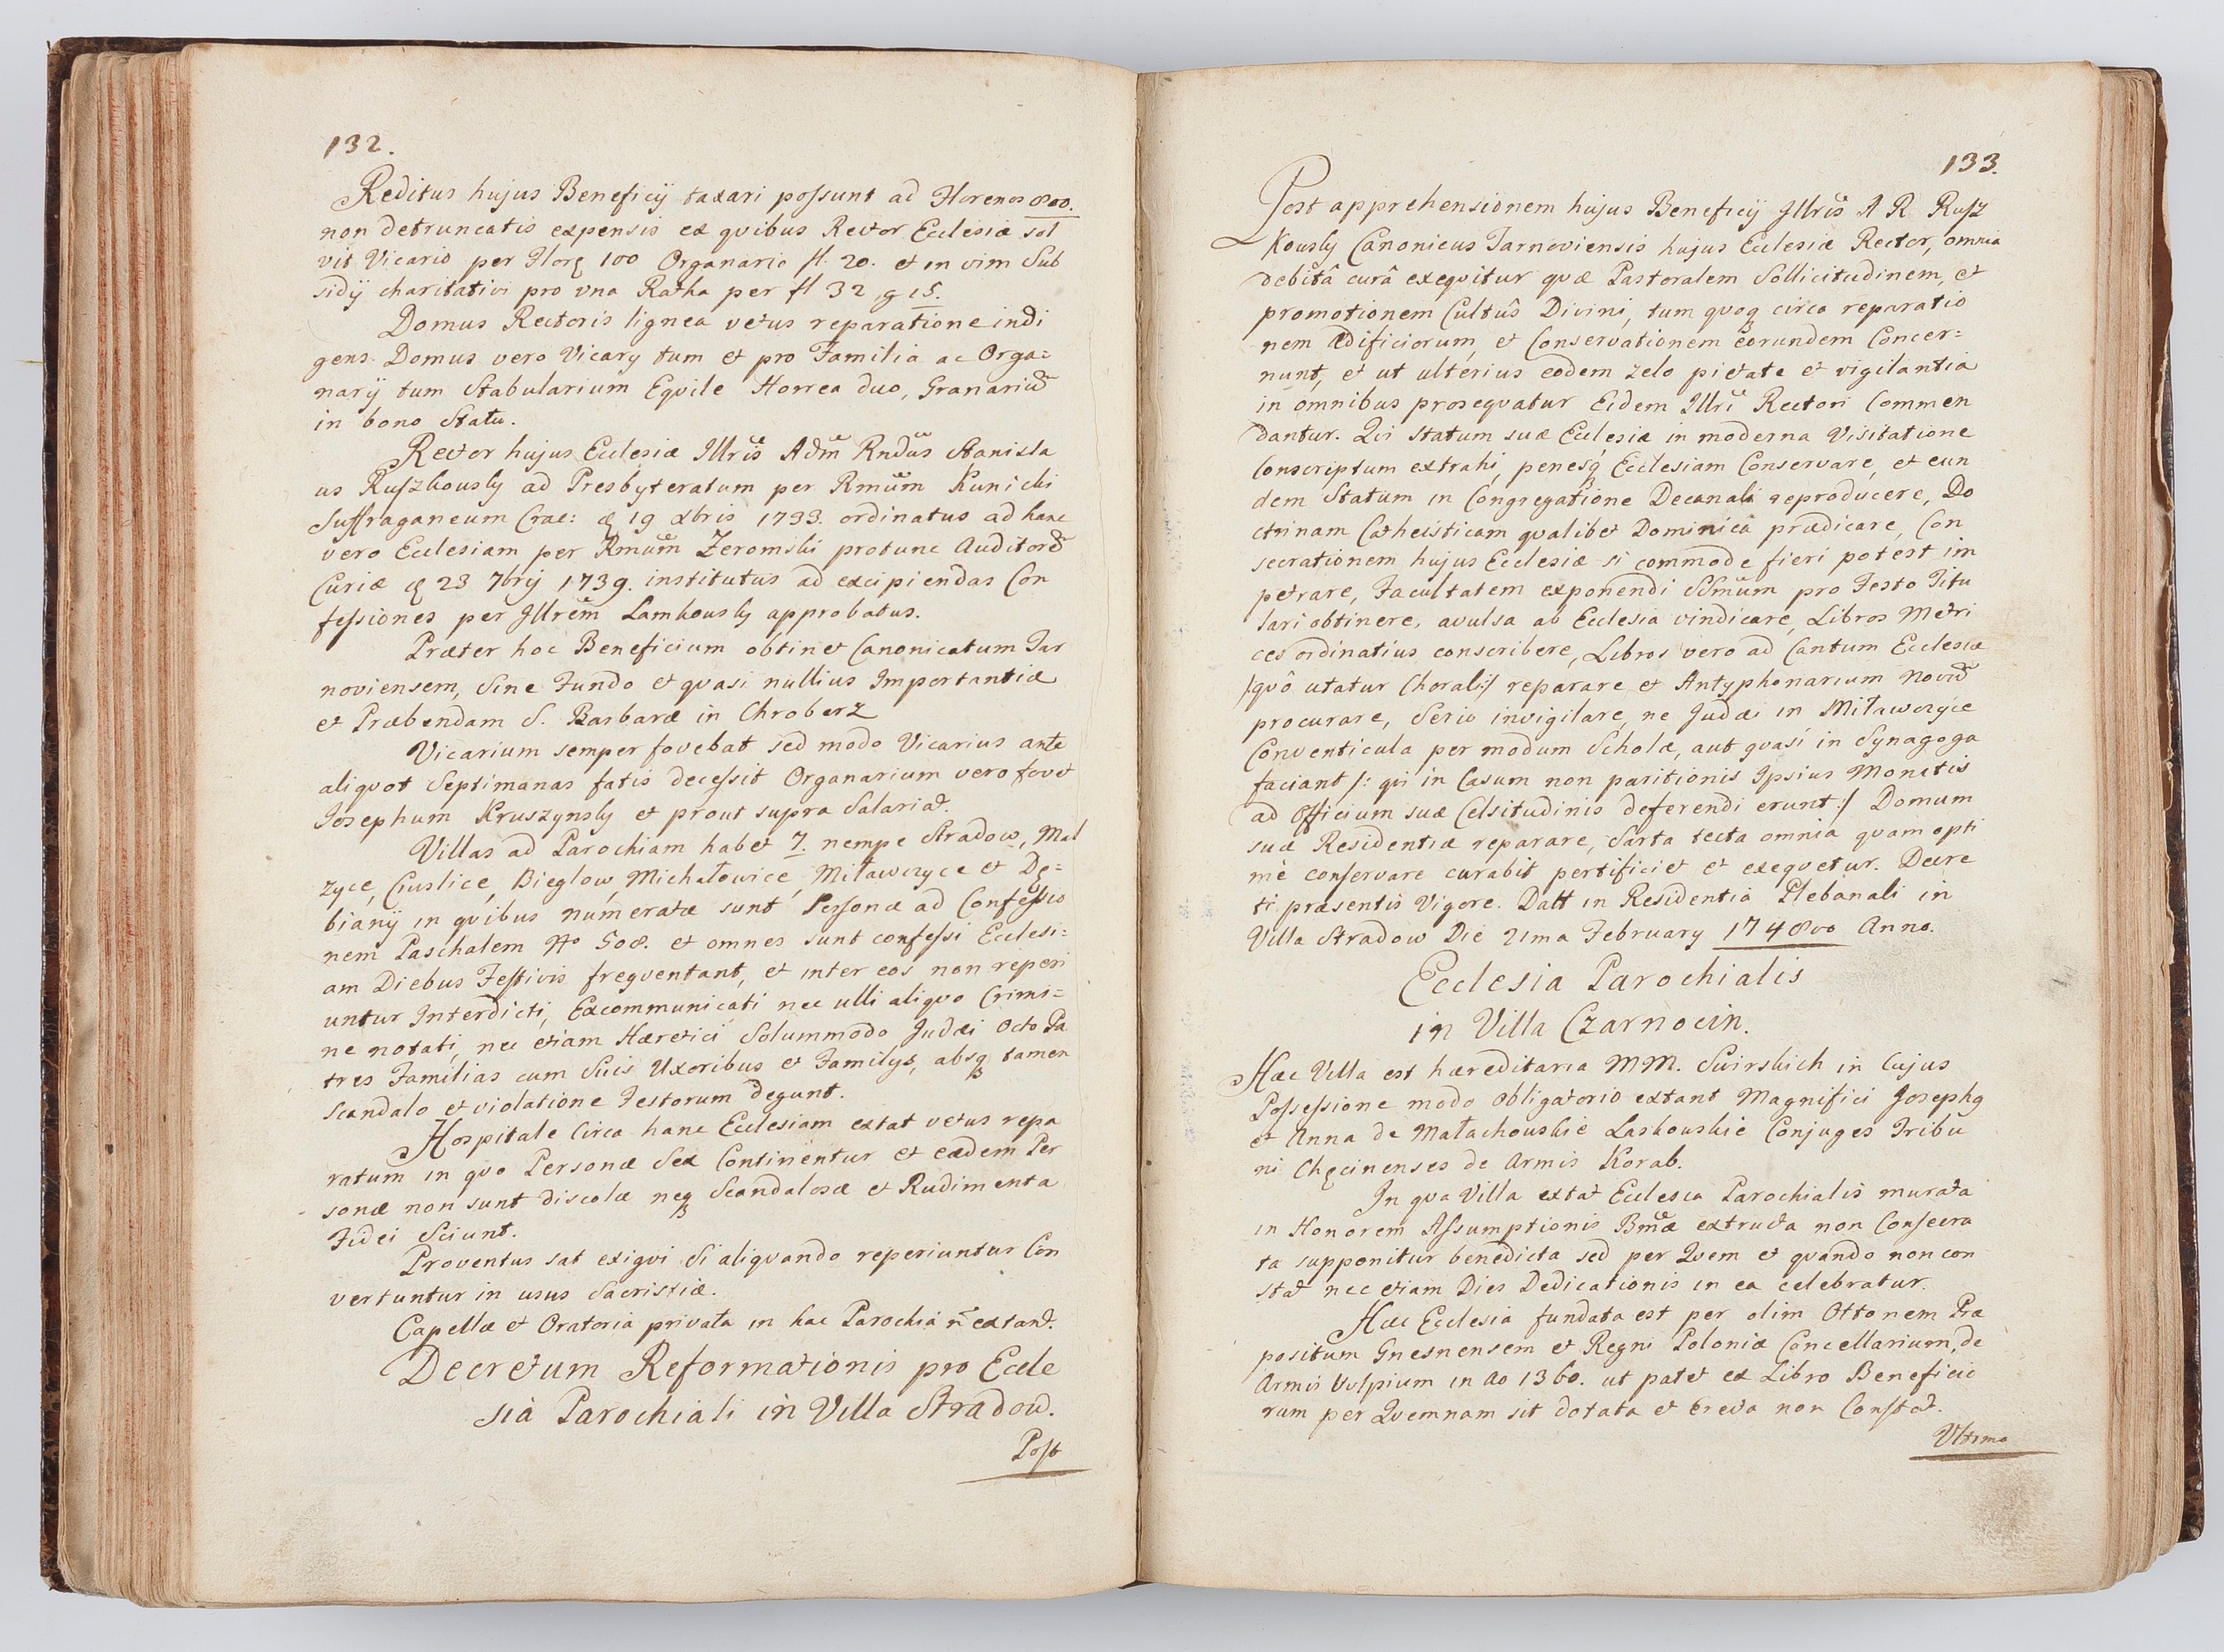 132.
Reditus hujus Beneficij taxari possunt ad Florenos 800.
non detruncatis expensis ex qvibus Rector Ecclesiæ sol
vit Vicario per Flor 100 Organario fl. 20. et in vim Sub
sidij charitativi pro una Ratha per fl 32 g 15.
Domus Rectoris lignea vetus reparatione indi
gens. Domus vero Vicarij tum et pro Familia ac Orga=
narij tum Stabularium Eqvile Horrea duo, Granariū
in bono Statu.
Rector hujus Ecclesiæ Illris Adm Rndus Stanisla
us Ruszkowsky ad Presbyteratum per Rmum Kunicki
Suffraganeum Crac: d 19 Xbris 1733. ordinatus ad hanc
vero Ecclesiam per Rmum Zeromski protunc Auditorē
Curiæ d 23 7brij 1739. institutus ad excipiendas Con
fessiones per Illrem Lamkowsky approbatus.
Præter hoc Beneficium obtinet Canonicatum Tar
noviensem, Sine Fundo et qvasi nullius Importantiæ
et Præbendam S. Barbaræ in Chroberz
Vicarium semper fovebat sed modo Vicarius ante
aliqvot Septimanas fatis decessit Organarium vero fovet
Josephum Kruszynsky et prout supra Salariat.
Villas ad Parochiam habet 7. nempe Stradow, Mal
zyce, Ciuslice, Bieglow, Michałowice, Miławczyce et De=
biany in qvibus numeratæ sunt Personæ ad Confessio
nem Paschalem No 508. et omnes sunt confessi Ecclesi=
am Diebus Festivis freqventant, et inter eos non reperi
untur Interdicti, Excommunicati nec ulli aliqvo Crimi=
ne notati, nec etiam Hæretici Solummodo Judæi Octo Pa
tres Familias cum Suis Uxoribus et Familijs, absq tamen
Scandalo et violatione Festorum degunt.
Hospitale Circa hanc Ecclesiam extat vetus repa
ratum in qvo Personæ Sex Continentur et eædem Per
sonæ non sunt discolæ neq Scandalosæ et Rudimenta
Fidei Sciunt.
Proventus sat exigvi Si aliqvando reperiuntur Con
vertuntur in usus Sacristiæ.
Capellæ et Oratoria privata in hac Parochia ñ extant.
Decretum Reformationis pro Eccle
sia Parochiali in Villa Stradow.
Post
133.
Post apprehensionem hujus Beneficij Illris A R Rusz
kowsky Canonicus Tarnoviensis hujus Ecclesiæ Rector, omnia
debitâ curâ exeqvitur qvæ Pastoralem Sollicitudinem, et
promotionem Cultûs Divini, tum qvoq circa reparatio
nem ædificiorum, et Conservationem eorundem Concer=
nunt, et ut ulterius eodem zelo pietate et vigilantia
in omnibus proseqvatur Eidem Illri Rectori Commen
dantur. Qvi Statum suæ Ecclesiæ in moderna Visitatione
Conscriptum extrahi, penesq Ecclesiam Conservare, et eun
dem Statum in Congregatione Decanali reproducere, Do
ctrinam Catheisticam qvalibet Dominica prædicare, Con
secrationem hujus Ecclesiæ si commode fieri potest im
petrare, Facultatem exponendi SSmum pro Festo Titu
lari obtinere, avulsa ab Ecclesia vindicare, Libros Metri
ces ordinatius conscribere, Libros vero ad Cantum Ecclesiæ
/qvô utatur Chorali:/ reparare et Antyphonarium novū
procurare, Serio invigilare, ne Judæi in Miławczyce
Conventicula per modum Scholæ, aut qvasi in Synagoga
faciant /: qvi in Casum non paritionis Ipsius Monitis
ad Officium suæ Celsitudinis deferendi erunt:/ Domum
suæ Residentiæ reparare, Sarta tecta omnia qvam opti
mè conservare curabit pertificiet et exeqvetur. Decre
ti præsentis Vigore. Datt in Residentia Plebanali in
Villa Stradow Die 21ma February 1748vo Anno.
Ecclesia Parochialis
in Villa Czarnocin.
Hæc Villa est hæreditaria MM. Swirskich in Cujus
Possessione modo Obligatorio extant Magnifici Josephg
et Anna de Małachowskie Laskowskie Conjuges Tribu
ni Chęcinenses de Armis Korab.
In qva Villa extat Ecclesia Parochialis murata
in Honorem Assumptionis Bmæ extructa non Consecra
ta supponitur benedicta sed per Qvem et qvando non con
stat nec etiam Dies Dedicationis in ea celebratur.
Hæc Ecclesia fundata est per olim Ottonem Præ
positum Gnesnensem et Regni Poloniæ Cancellarium, de
Armis Vulpium in Ao 1360. ut patet ex Libro Beneficio
rum per Qvemnam sit dotata et Erecta non Constat.
Ultima